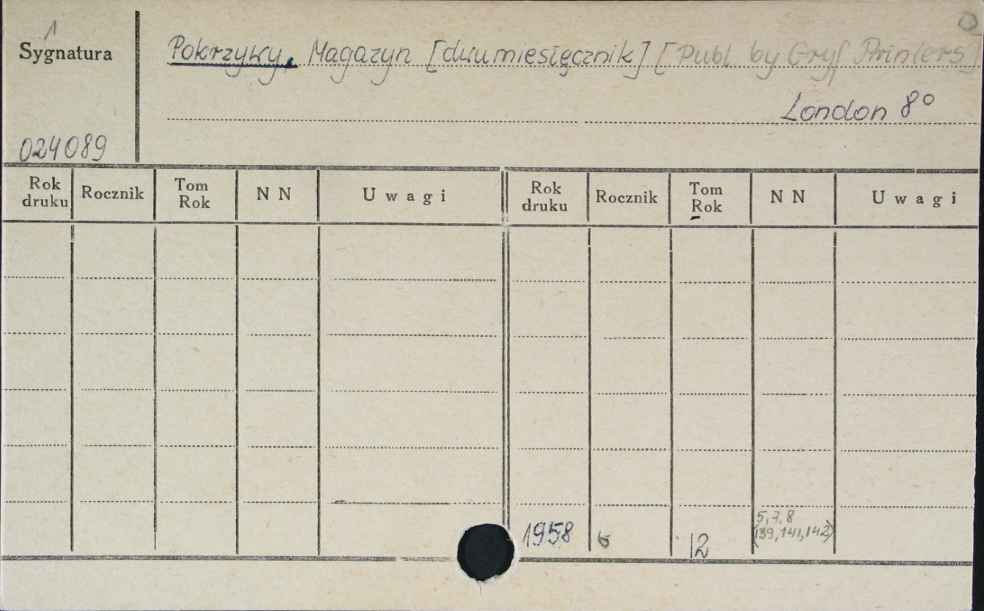 Sygnatura
Pokrzywy. Magazyn [dwumiesięcznik] [Publ. by Gryf Printers]
London 8°
024089
Rok druku Rocznik Tom Rok N N Uwagi Rok druku Rocznik Tom Rok N N Uwagi
1958 6 12 5, 7, 8
(139, 141, 142)